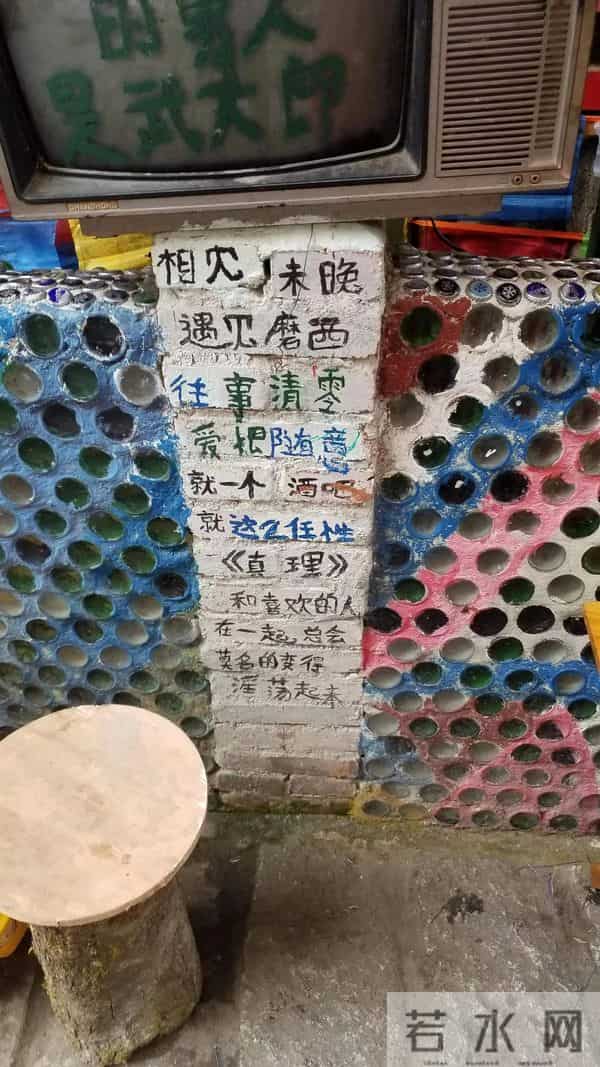 的男人
是武大郎
SHANGHONG
相穴 未晚
遇见磨西
往事清零
爱把随意
就一个 酒吧
就这么任性
《真理》
和喜欢的人
在一起,总会
莫名的变得
淫荡起来
若水网